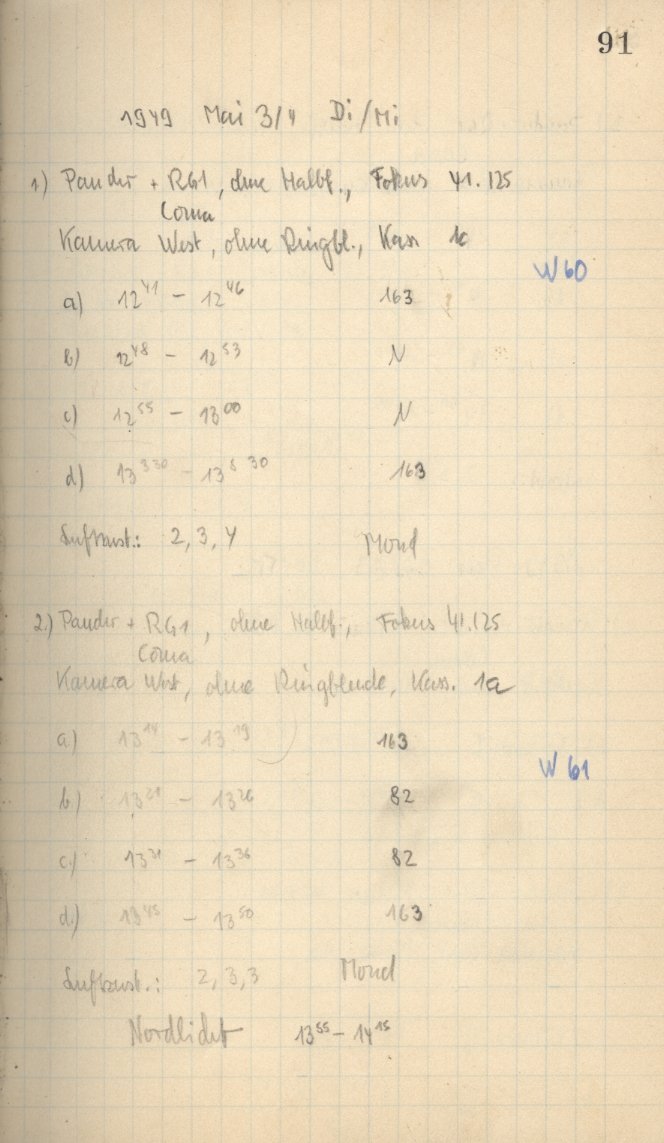 91
1949 Mai 3/4 Di/Mi
1) Pander + RG1, ohne Halbf., Fokus 41.125
Coma
Kamera West, ohne Ringbl., Kass
W 60
a) 12 41 – 12 46 163
b) 12 48 – 12 53 N
c) 12 55 – 13 00 N
d) 13 3 30 – 13 8 30 163
Luftzust.: 2, 3, 4 Mond
2.) Pander + RG1, ohne Halbf., Fokus 41.125
Coma
Kamera West, ohne Ringblende, Kass. 1a
a) 13 14 – 13 19 163
W 61
b) – 13 26 82
c.) 13 31 – 13 36 82
d.) 13 45 – 13 50 163
Luftzust.: 2, 3, 3 Mond
Nordlicht 13 55 – 14 15